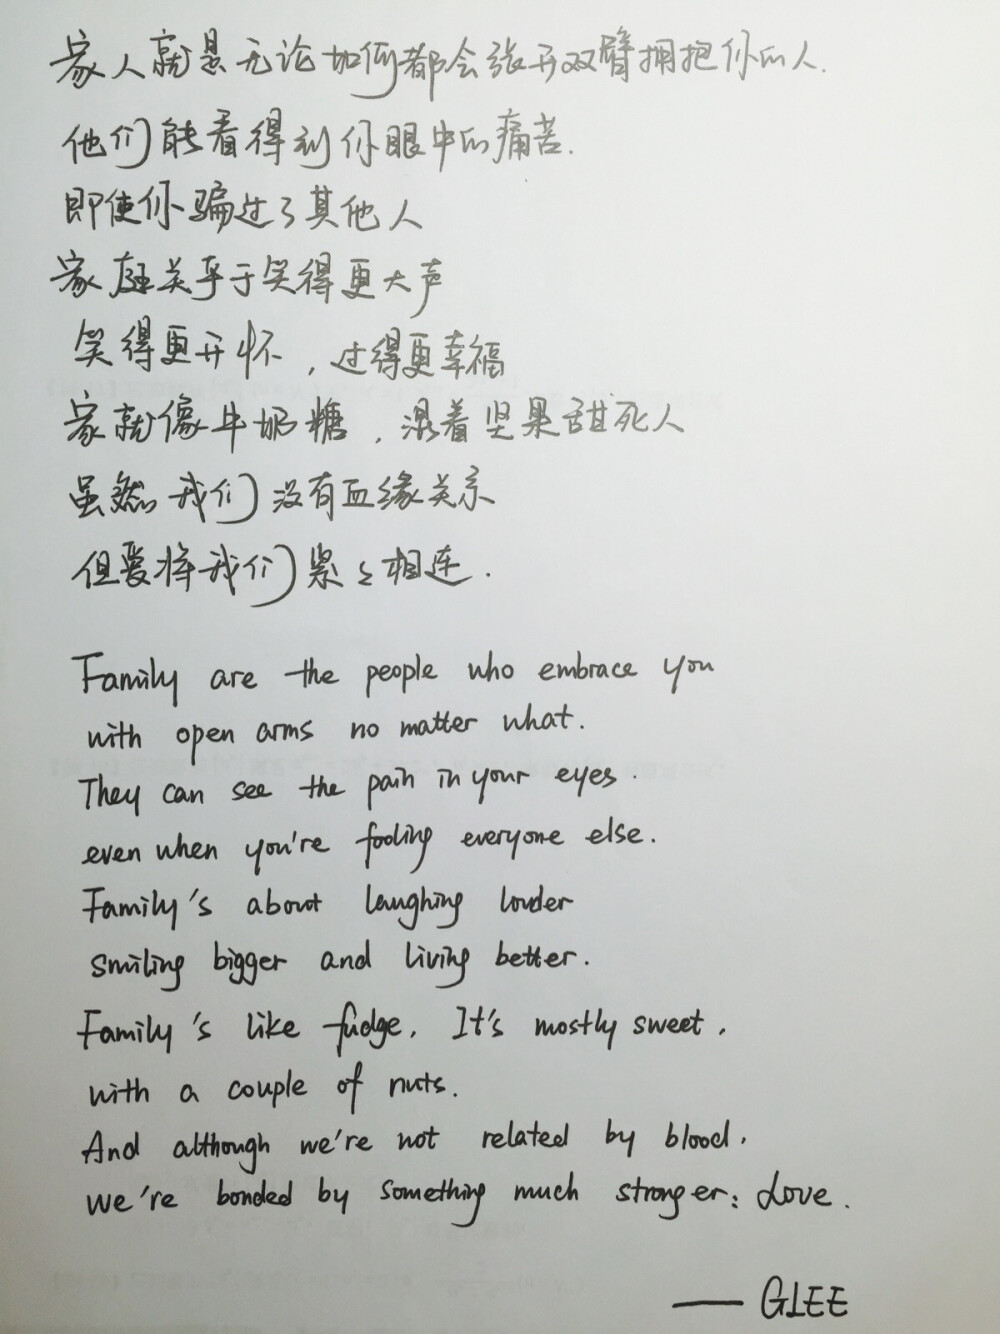 家人就是无论如何都会张开双臂拥抱你的人.
他们能看得到你眼中的痛苦.
即使你骗过了其他人
家庭关乎于笑得更大声
笑得更开怀，过得更幸福
家就像牛奶糖，混着坚果甜死人
虽然我们没有血缘关系
但爱将我们紧々相连.
Family are the people who embrace you
with open arms no matter what.
They can see the pain in your eyes.
even when you're fooling everyone else.
Family's about laughing louder
smiling bigger and living better.
Family's like fudge. It's mostly sweet,
with a couple of nuts.
And although we're not related by blood,
we're bonded by something much stronger: Love.
—— GLEE